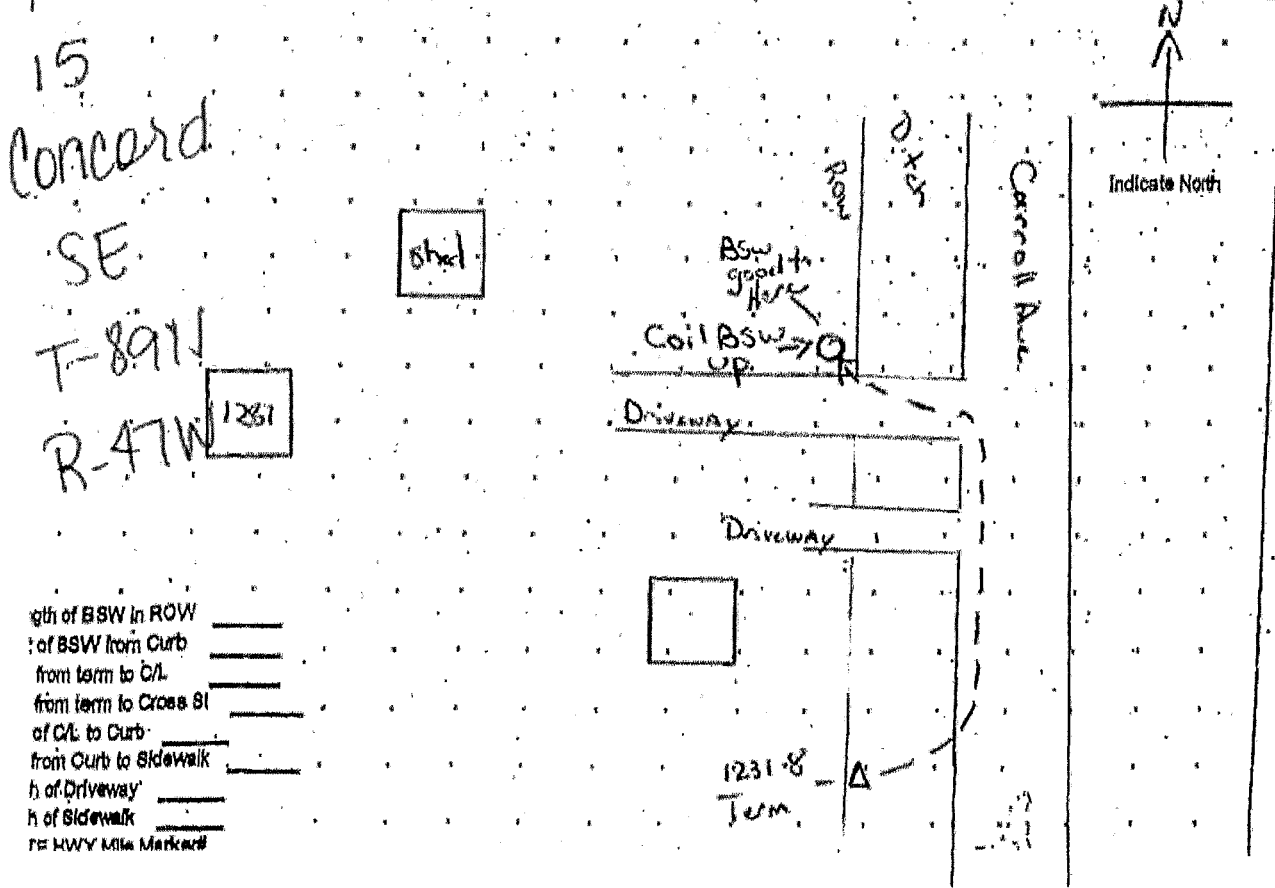 15
Concord
SE
T-89N
R-47W
N
Indicate North
Shed
Row
Ditch
Carroll Ave.
BSW
good to
Here
Coil BSW
up.
Driveway
Driveway
1231-8
Term
gth of BSW in ROW
of BSW from Curb
from term to C/L
from term to Cross St
of C/L to Curb
from Curb to Sidewalk
h of Driveway
h of Sidewalk
TE HWY Mile Marker#